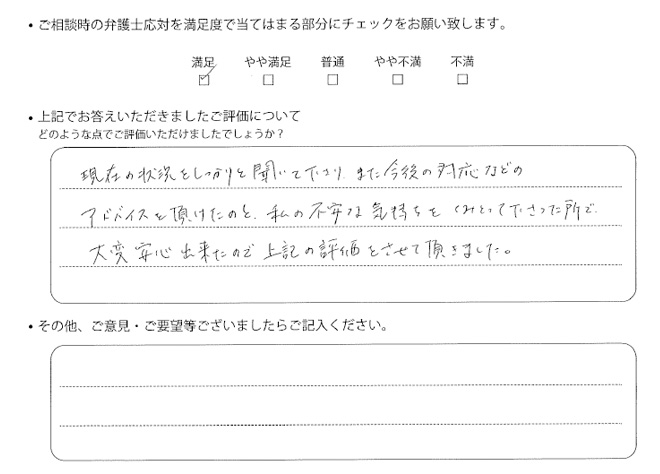 ・ご相談時の弁護士応対を満足度で当てはまる部分にチェックをお願い致します。
満足 やや満足 普通 やや不満 不満
・上記でお答えいただきましたご評価について
どのような点でご評価いただけましたでしょうか？
現在の状況をしっかりと聞いて下さり、また今後の対応などの
アドバイスを頂けたのと、私の不安な気持ちをくみとって下さった所で、
大変安心出来たので上記の評価をさせて頂きました。
・その他、ご意見・ご要望等ございましたらご記入ください。